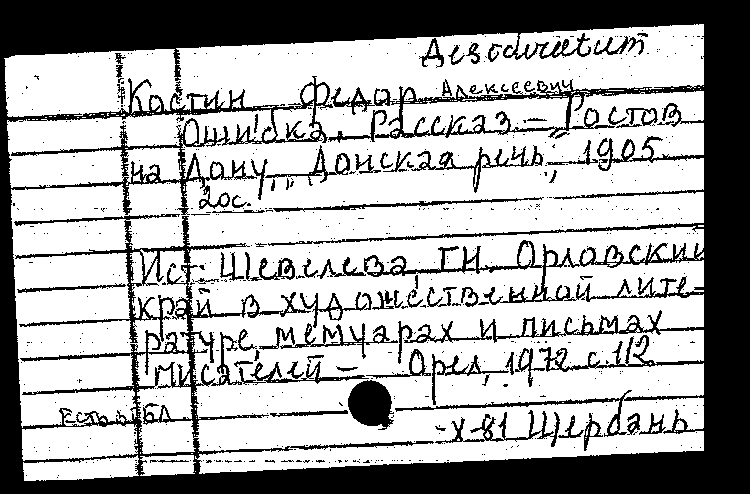 Desideratum
Костин Федор Алексеевич
Ошибка. Рассказ. – Ростов
на Дону, „Донская речь", 1905.
20с.
Ист: Шевелева, Г.Н. Орловский
край в художественной лите-
ратуре, мемуарах и письмах
писателей – Орел, 1972 с. 112
Есть в ГБЛ
-X-81 Щербань